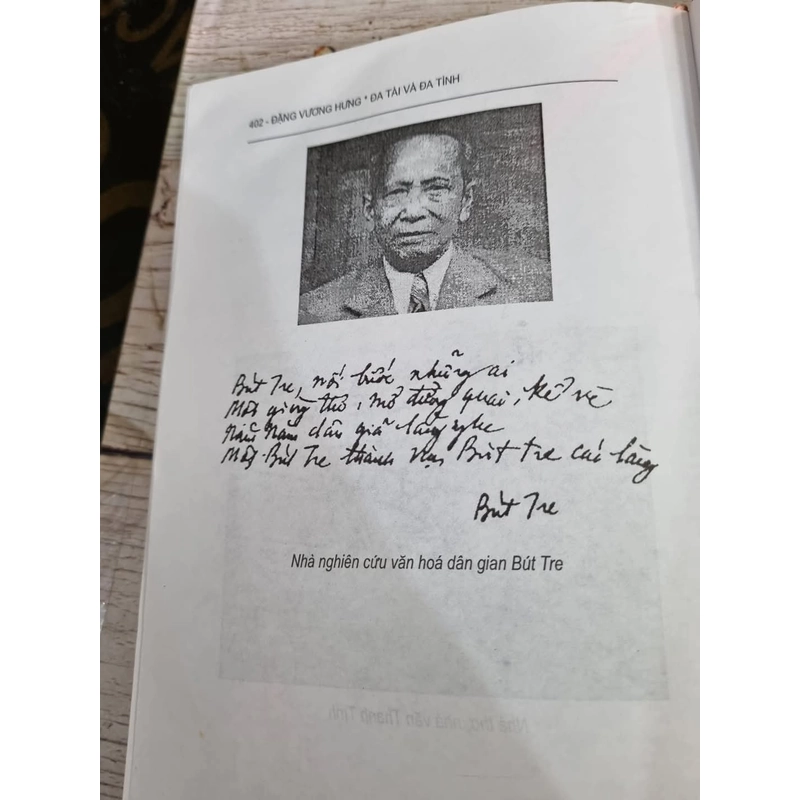 402 - ĐẶNG VƯƠNG HƯNG * ĐA TÀI VÀ ĐA TÌNH
Bút Tre, nối bước những ai
Một giọng thơ, mở đường quai, kể vè
Năm năm dân giã lắng nghe
Một Bút Tre thành vạn Bút Tre các làng
Bút Tre
Nhà nghiên cứu văn hoá dân gian Bút Tre